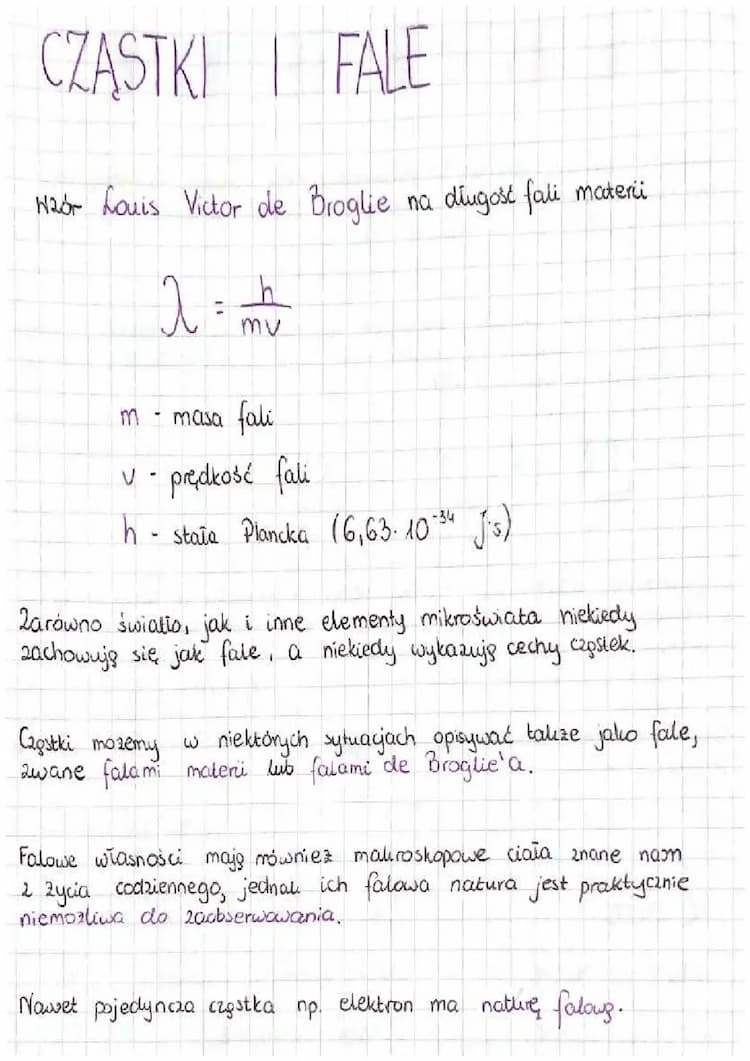 CZĄSTKI I FALE
Wzór Louis Victor de Broglie na długość fali materii
λ = h/mv
m - masa fali
v - prędkość fali
h - stała Plancka (6,63 · 10⁻³⁴ J·s)
Zarówno światło, jak i inne elementy mikroświata niekiedy
zachowują się jak fale, a niekiedy wykazują cechy cząstek.
Cząstki możemy w niektórych sytuacjach opisywać także jako fale,
zwane falami materii lub falami de Broglie'a.
Falowe własności mają również makroskopowe ciała znane nam
z życia codziennego, jednak ich falowa natura jest praktycznie
niemożliwa do zaobserwowania.
Nawet pojedyncza cząstka np. elektron ma naturę falową.